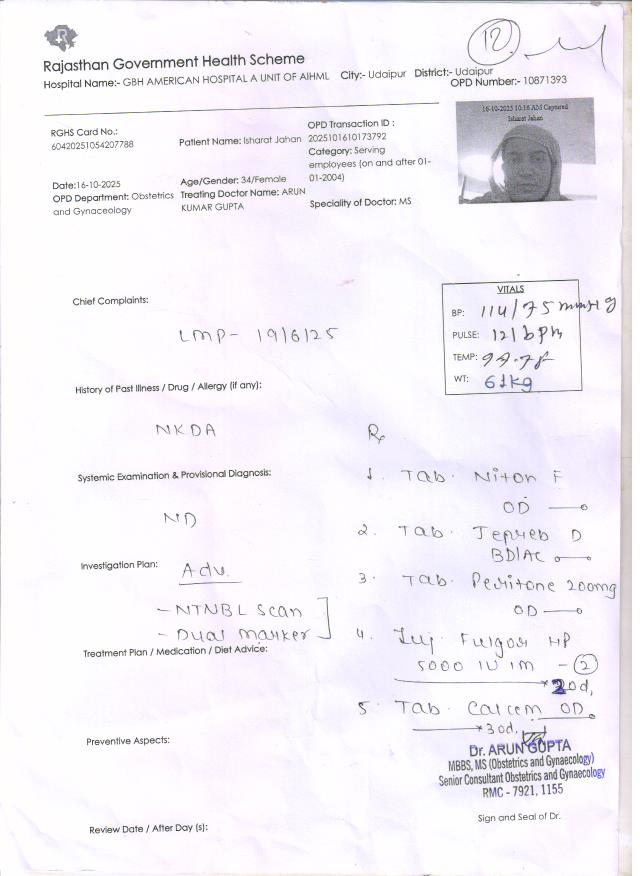 Rajasthan Government Health Scheme
12.
Hospital Name:- GBH AMERICAN HOSPITAL A UNIT OF AIHML City:- Udaipur District:- Udaipur
OPD Number:- 10871393
16-10-2025 10:16 AM Captured
Isharat Jahan
RGHS Card No.:
60420251054207788
Patient Name: Isharat Jahan
OPD Transaction ID :
2025101610173792
Category: Serving
employees (on and after 01-
01-2004)
Date:16-10-2025
OPD Department: Obstetrics
and Gynaceology
Age/Gender: 34/Female
Treating Doctor Name: ARUN
KUMAR GUPTA
Speciality of Doctor: MS
Chief Complaints:
LMP- 19/6/25
VITALS
BP: 114/75 mmHg
PULSE: 121bpm
TEMP:
WT: 61kg
History of Past Illness / Drug / Allergy (if any):
NKDA
Rx
Systemic Examination & Provisional Diagnosis:
ND
1. Tab. Niton F
OD
2. Tab. D
BD/AC
Investigation Plan:
Adv.
- NTNBL Scan
- Dual marker
3. Tab. 200mg
OD
4. Inj. HP
5000 IU IM - 2
Treatment Plan / Medication / Diet Advice:
5. Tab. OD.
* 30d.
Preventive Aspects:
Dr. ARUN GUPTA
MBBS, MS (Obstetrics and Gynaecology)
Senior Consultant Obstetrics and Gynaecology
RMC - 7921, 1155
Sign and Seal of Dr.
Review Date / After Day (s):